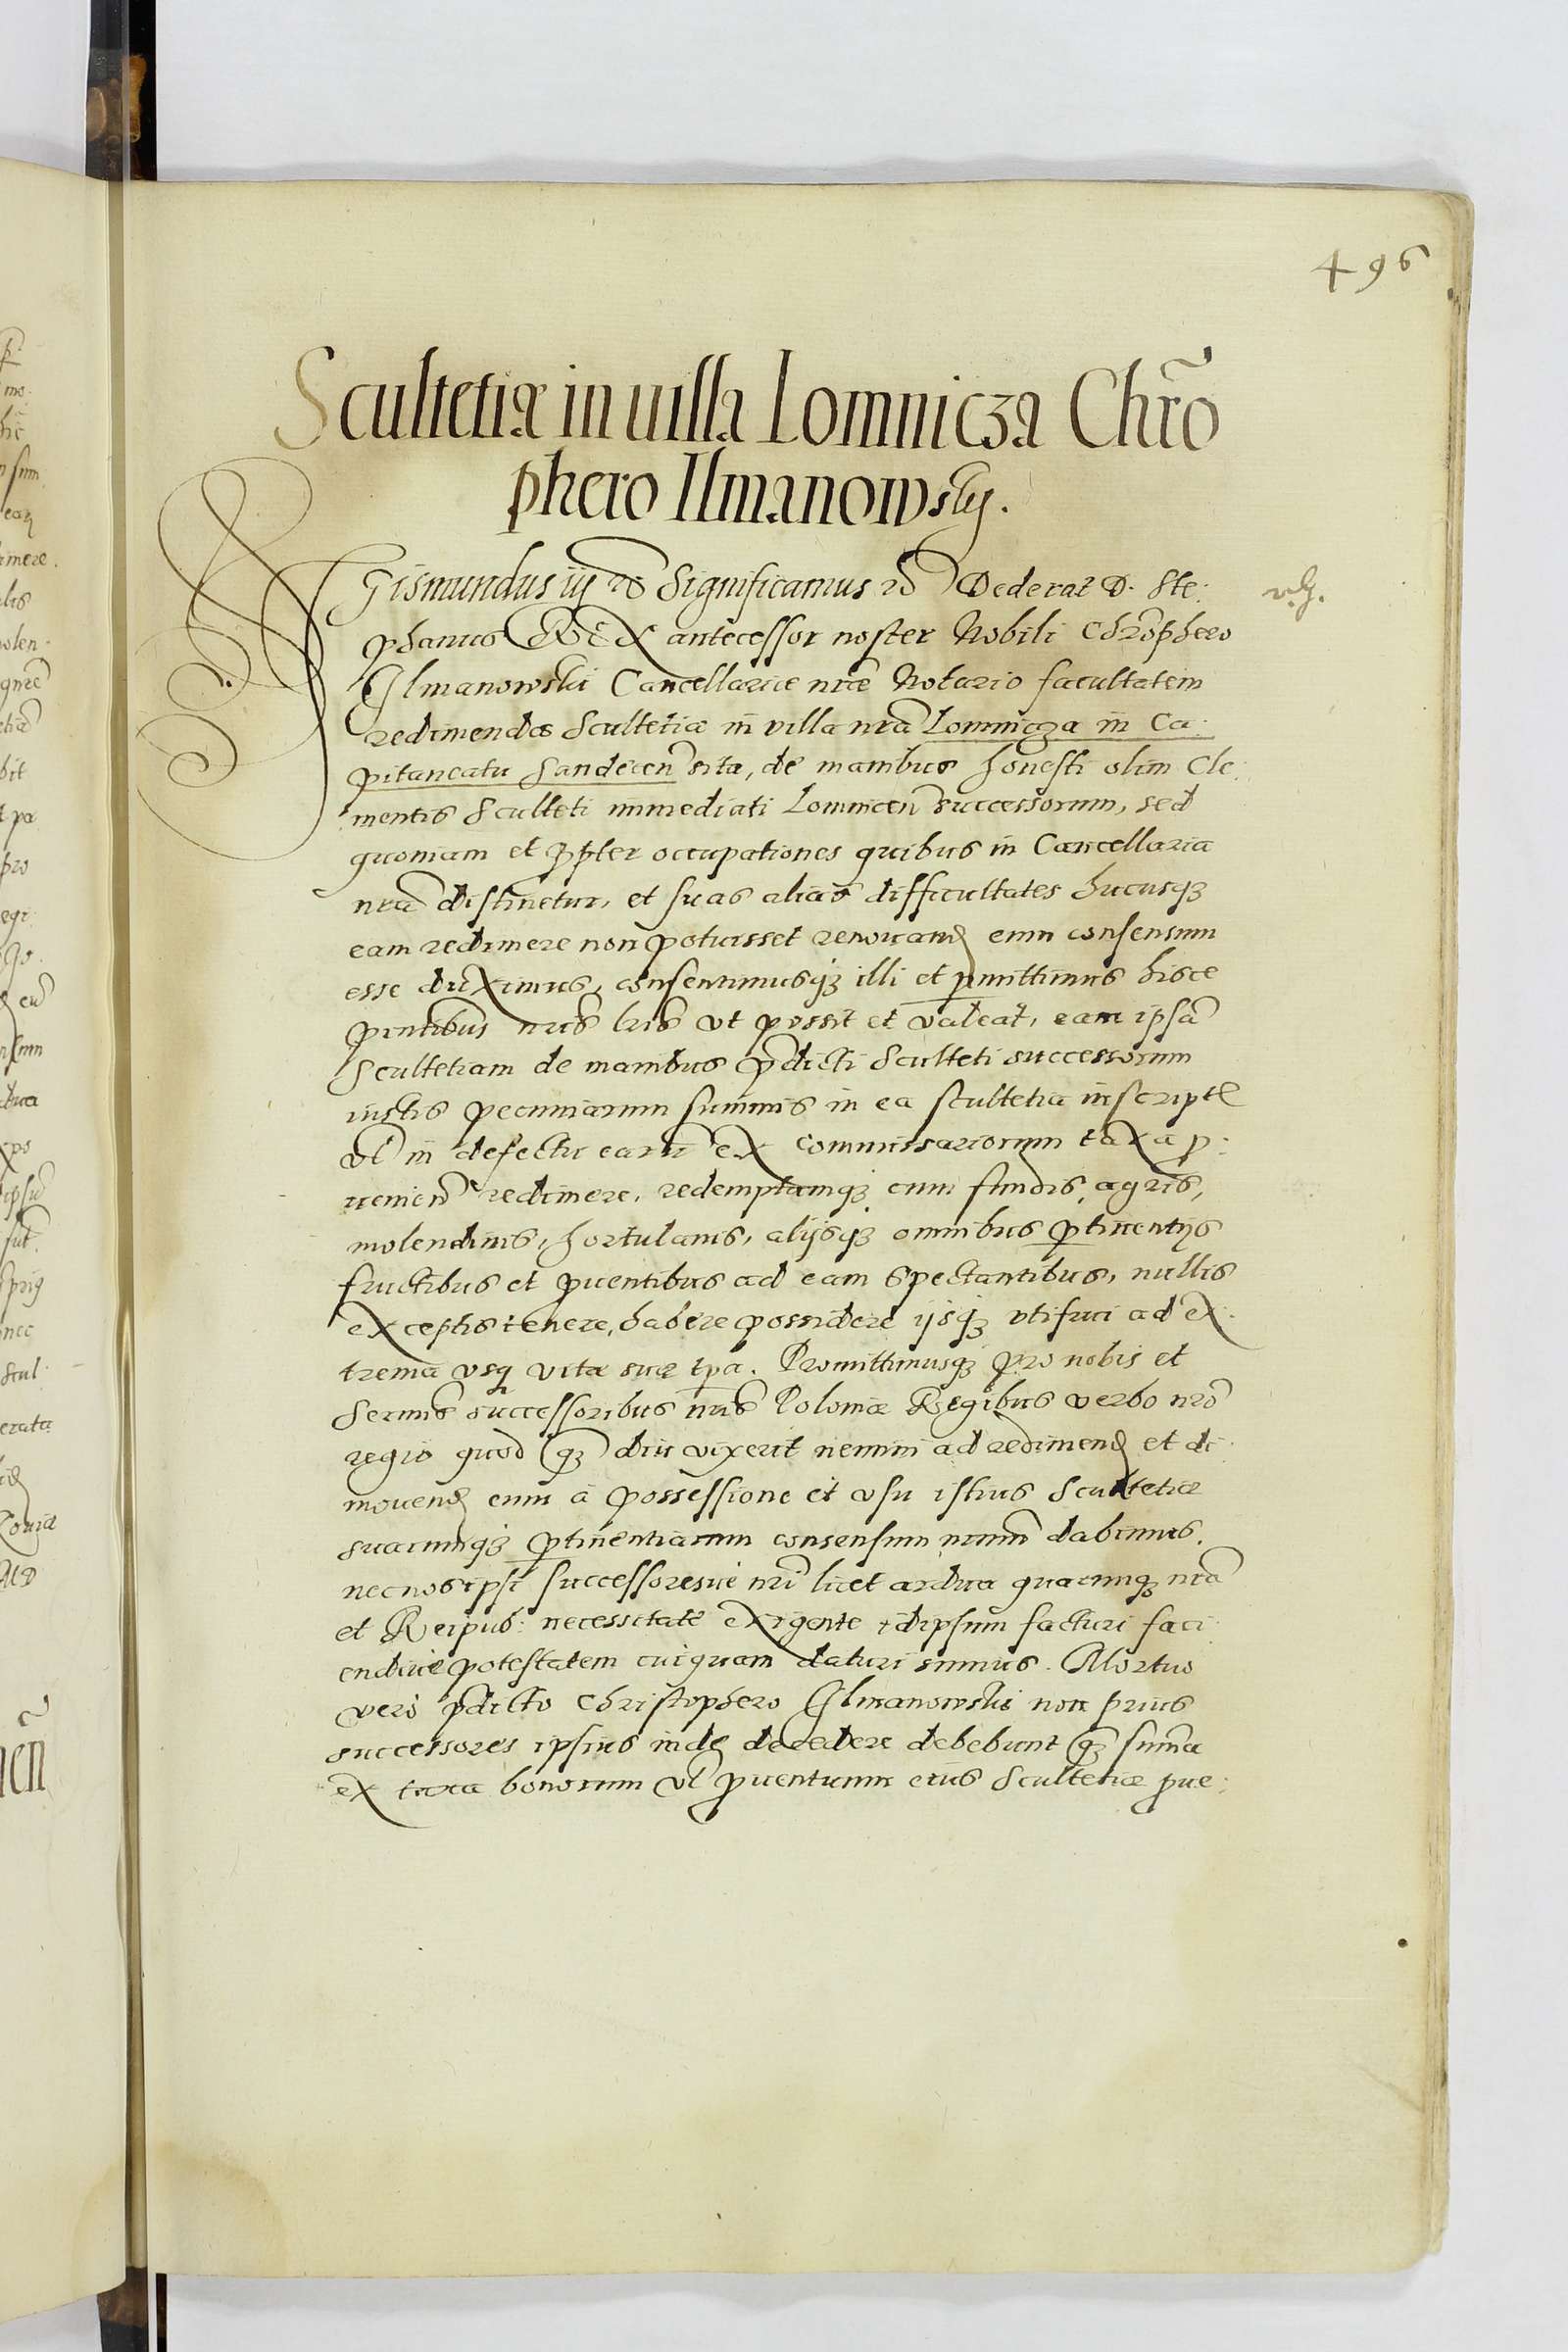 496
Scultetiæ in uilla Lomnicza Chrõ
phero Ilmanowsky.
SGismundus iij rc Significamus rc Dederat D. Ste:
phanus REX antecessor noster Nobili Chrõphero
Ilmanowski Cancellariæ nræ Notario facultatem
redimendæ Scultetiæ in villa nrã Lomnicza in Ca:
pitaneatu Sandecen sita, de manibus honesti olim Cle:
mentis Sculteti immediati Lomnicen successorum, sed
quoniam et ꝓpter occupationes quibus in Cancellaria
nrã distinetur, et suas alias difficultates hucusqꝫ
eam redimere non potuisset renouand eum consensum
esse duximus, consentimusqꝫ illi et ꝑmittimus hisce
pñtibus nris lris vt possit et valeat, eam ipsã
Scultetiam de manibus p̃dicti Sculteti successorum
iustis pecuniarum summis in ea scultetia inscript
vl in defectu earũ ex commissariorum taxa ꝓ:
uenien redimere, redemptamqꝫ cum fundis, agris,
molendinis, hortulanis, alijsqꝫ omnibus ꝑtinentijs
fructibus et ꝓuentibus ad eam spectantibus, nullis
exceptis tenere, habere possidere ijsqꝫ vtifrui ad ex:
trema vsqꝫ vitæ suæ tpa. Promittimusqꝫ pro nobis et
Sermis successoribus nris Poloniæ Regibus verbo nrõ
regio quod qꝫ diu vixerit nemini ad redimend et di:
mouend eum à possessione et vsu istius Scultetiæ
suarumqꝫ ꝑtinentiarum consensum nrum dabimus.
nec nos ipsi successoresue nri licet ardua quacunqꝫ nrã
et Reipub: necessitate exigente idipsum facturi faci:
endiue potestatem cuiquam daturi sumus. Mortuo
vero p̃dicto Christophero Ilmanowski non prius
successores ipsius inde decedere debebunt qꝫ summa
ex taxa bonorum vl ꝓuentuum eius Scultetiæ ꝓue: